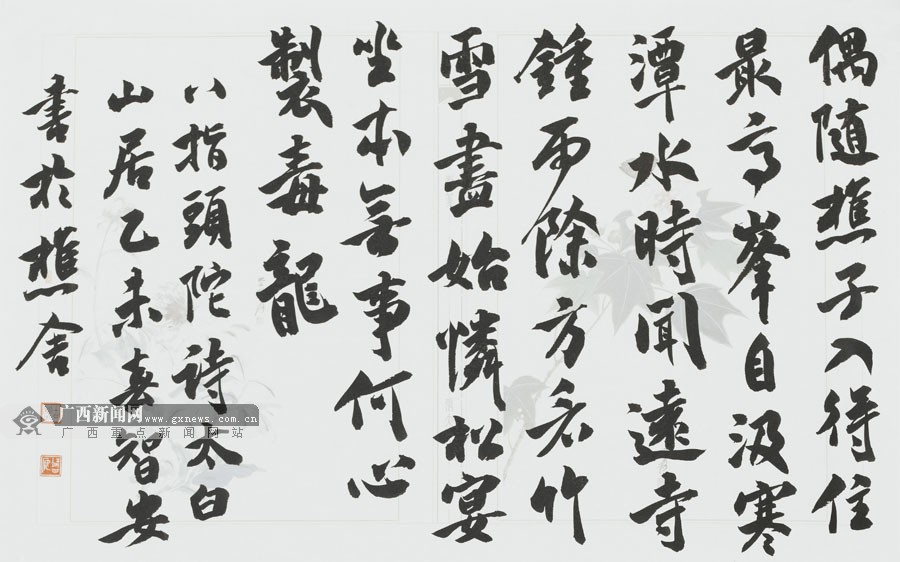 偶随樵子入得住
最高峯自汲寒
潭水時聞遠寺
鍾雨餘方看竹
雪盡始憐松宴
坐本無事何心
製毒龍
八指頭陀詩太白
山居乙未春智安
書於樵舍
广西新闻网 www.gxnews.com.cn
广西重点新闻网站